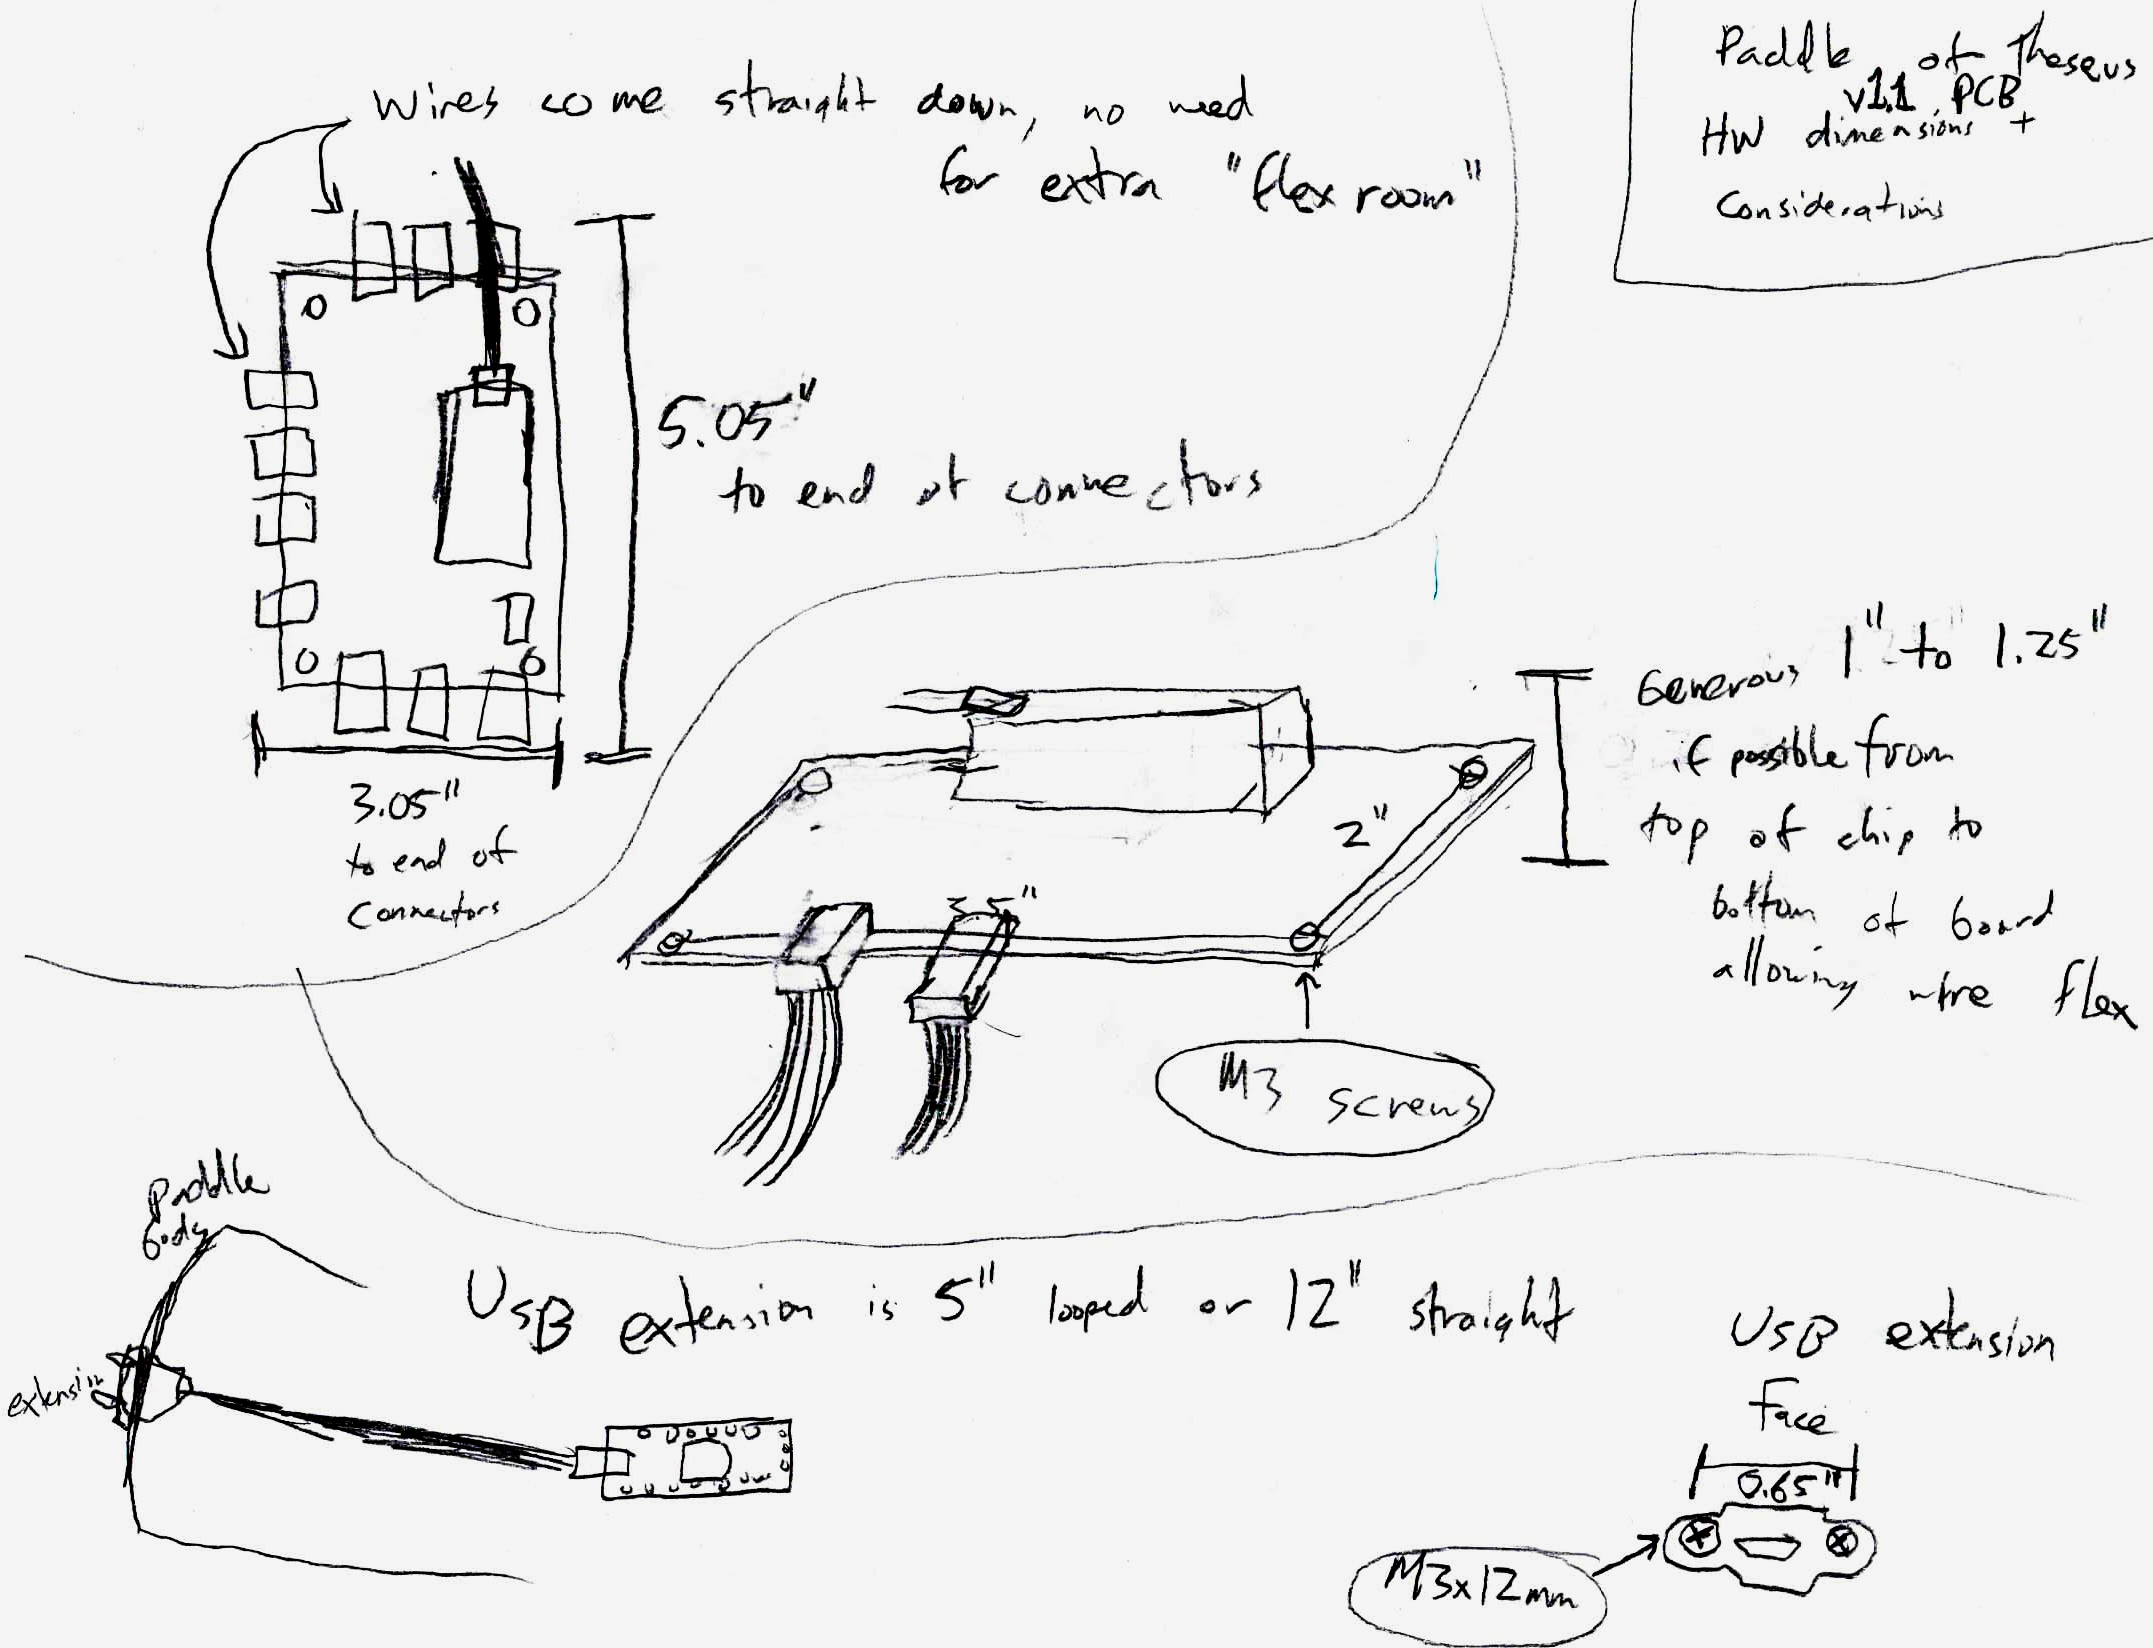 Paddle of Theseus
v1.1 PCB
HW dimensions +
Considerations
Wires come straight down, no need
for extra "flex room"
5.05"
to end of connectors
3.05"
to end of
connectors
Generous 1" to 1.25"
if possible from
top of chip to
bottom of board
allowing wire flex
2"
3.5"
M3 screws
Paddle
body
extension
USB extension is 5" looped or 12" straight
USB extension
Face
0.65"
M3x12mm